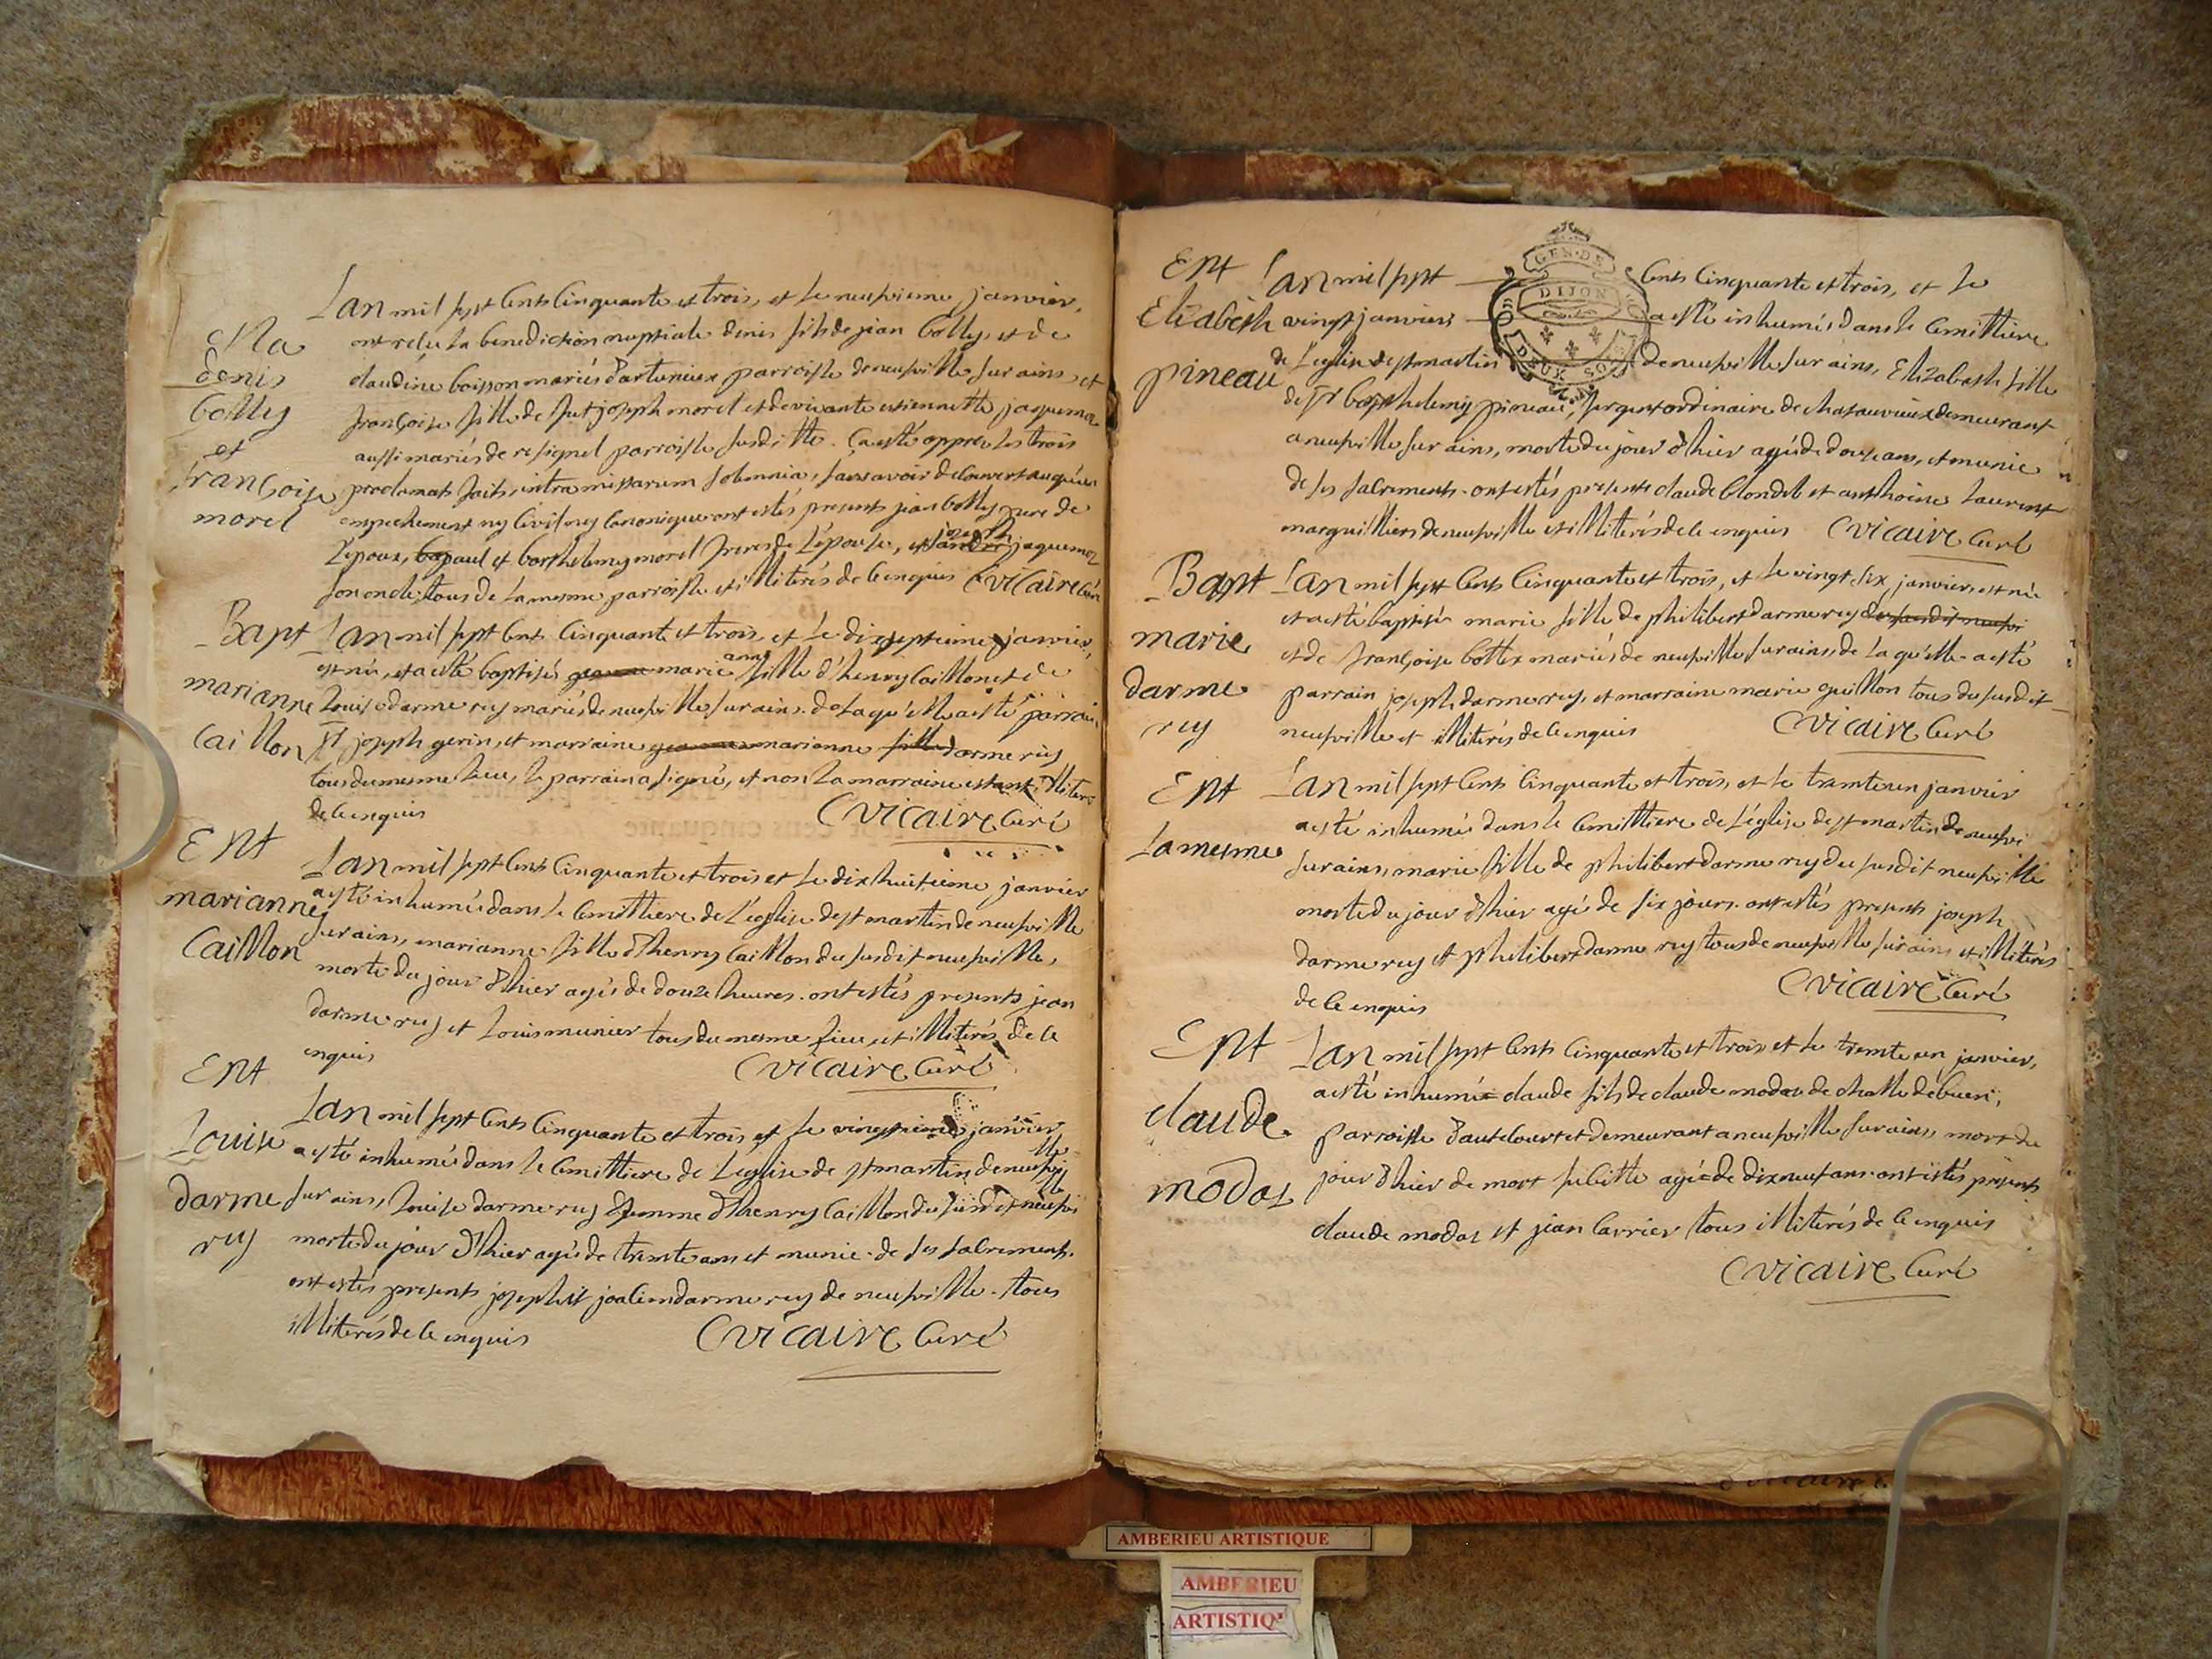 Ma
denis
Colly
et
françoise
morel
Lan mil sept cents cinquante et trois, et le neufvieme janvier,
ont reçu la benediction nuptiale denis fils de jean Colly, et de
claudine boisson mariés d'artunieux parroisse de neufville sur ains, et
françoise fille de fut joseph morel et de vivante estiennette jaquemoz
aussi mariés de resignel parroisse susditte. Ca esté appres les trois
proclamats faits, intra missarum solemnia, sans avoir decouvert auqu'un
empechement ny civil ny canonique ont estés presents jean Colly pere de
l'epoux, paul et barthelemy morel freres de l'epouse, et joseph jaquemoz
son oncle, tous de la mesme parroisse et illiterés de ce enquis C vicaire Curé
Bapt
marianne
Caillon
Lan mil sept cents cinquante et trois, et le dixseptieme janvier,
est née, et a esté baptisée marie anne fille d'henry Caillon et de
louise darmerey mariés de neufville sur ains. de la qu'elle a esté parrain
sr joseph gerin, et marraine marianne darmerey
tous du mesme lieu, le parrain a signé, et non la marraine estant illiteré
de ce enquis C vicaire Curé
Ent
marianne
Caillon
Lan mil sept cents cinquante et trois et le dixhuitieme janvier
a esté inhumée dans le cemittiere de l'eglise de st martin de neufville
sur ains, marianne fille d'henry Caillon du susdit neufville,
morte du jour d'hier agée de douze heures. ont estés presents jean
darmerey et Louis munier tous du mesme lieu, et illiterés de ce
enquis C vicaire Curé
Ent
Louise
darme
rey
Lan mil sept cents cinquante et trois et le janvier
a esté inhumée dans le cemittiere de l'eglise de st martin de neufville
sur ains, louise darmerey femme d'henry Caillon du susdit neufville
morte du jour d'hier agée de trente ans et munie de ses sacrements.
ont estés presents joseph et joachim darmerey de neufville. tous
illiterés de ce enquis C vicaire Curé
Ent
Elizabeth
pineau
GEN. DE
DIJON
DEUX SOLS
Lan mil sept cents cinquante et trois, et le
vingt janvier a esté inhumée dans le cemittiere
de l'eglise de st martin de neufville sur ains, Elizabeth fille
de sr barthelemy pineau, sergent ordinaire de chatauvieux demeurant
a neufville sur ains, morte du jour d'hier agée de douze ans, et munie
de ses sacrements. ont estés presents claude blondet et anthoine Laurent
marguilliers de neufville et illiterés de ce enquis C vicaire Curé
Bapt
marie
darme
rey
Lan mil sept cents cinquante et trois, et le vingt six janvier, est née
et a esté baptisée marie fille de philibert darmerey du susdit neufvi
et de françoise Cottex mariés de neufville sur ains, de la qu'elle a esté
parrain joseph darmerey, et marraine marie guillon tous du susdit
neufville et illiterés de ce enquis C vicaire Curé
Ent
La mesme
Lan mil sept cents cinquante et trois, et le trente un janvier
a esté inhumée dans le cemittiere de l'eglise de st martin de neufvi
sur ains, marie fille de philibert darmerey du susdit neufville
morte du jour d'hier agée de six jours. ont estés presents joseph
darmerey et philibert darmerey tous de neufville sur ains et illiterés
de ce enquis C vicaire Curé
Ent
claude
modas
Lan mil sept cents cinquante et trois et le trente un janvier,
a esté inhumé claude fils de claude modas de challe de bueri,
parroisse d'autecourt et demeurant a neufville sur ains, mort du
jour d'hier de mort subitte agé de dixneuf ans. ont estés presents
claude modas et jean Carrier tous illiterés de ce enquis
C vicaire Curé
AMBERIEU ARTISTIQUE
AMBERIEU
ARTISTIQ